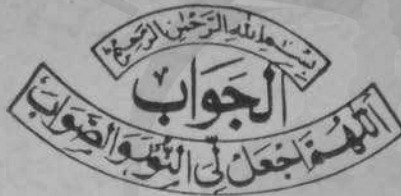 بِسْمِ اللّٰهِ الرَّحْمٰنِ الرَّحِيْمِ
الجَوَابُ
اَللّٰهُمَّ اجْعَلْ لِّي النُّوْرَ وَالصَّوَابَ